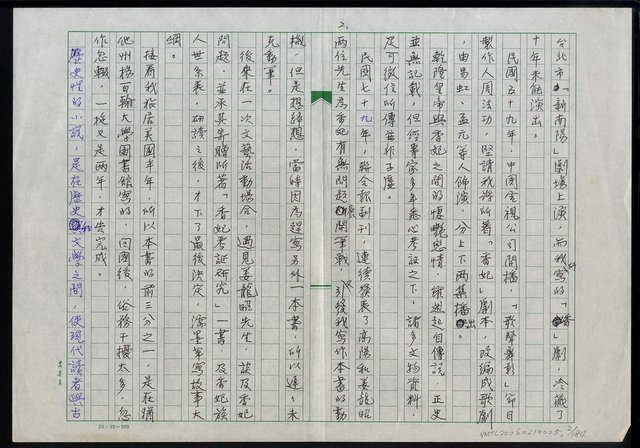 2.
台北市「新南陽」劇場上演，而我寫的「香」劇，冷藏了
十年未能演出。
民國五十九年，中國電視公司開播，「歌聲舞影」節目
製作人周法功，堅請我將所著「香妃」劇本，改編成歌劇
，由易虹、孟元等人飾演，分上下兩集播出。
乾隆皇帝與香妃之間的悽艷戀情，雖然起自傳說，正史
並無記載，但經專家多年悉心考証之下，諸多文物資料，
足可徵信所傳並非子虛。
民國七十九年，聯合報副刊，連續發表了高陽和姜龍昭
兩位先生為香妃有無問題展開筆戰，引發我寫作本書的動
機，但是想歸想，當時因為趕寫另外一本書，所以遲遲未
克動筆。
後來在一次文藝活動場合，遇見姜龍昭先生，談及香妃
問題，並承其寄贈所著「香妃考証研究」一書，及香妃族
人世系表，研讀之後，才下了最後決定，濡墨筆寫故事大
綱。
接着我旅居美國半年，所以本書的前三分之一，是在猶
他州楊百翰大學圖書館寫的，回國後，俗務干擾太多，忽
作忽輟，一拖又是兩年，才告完成。
歷史性的小說，是在歷史和文學之間，使現代讀者與古
20×25=500